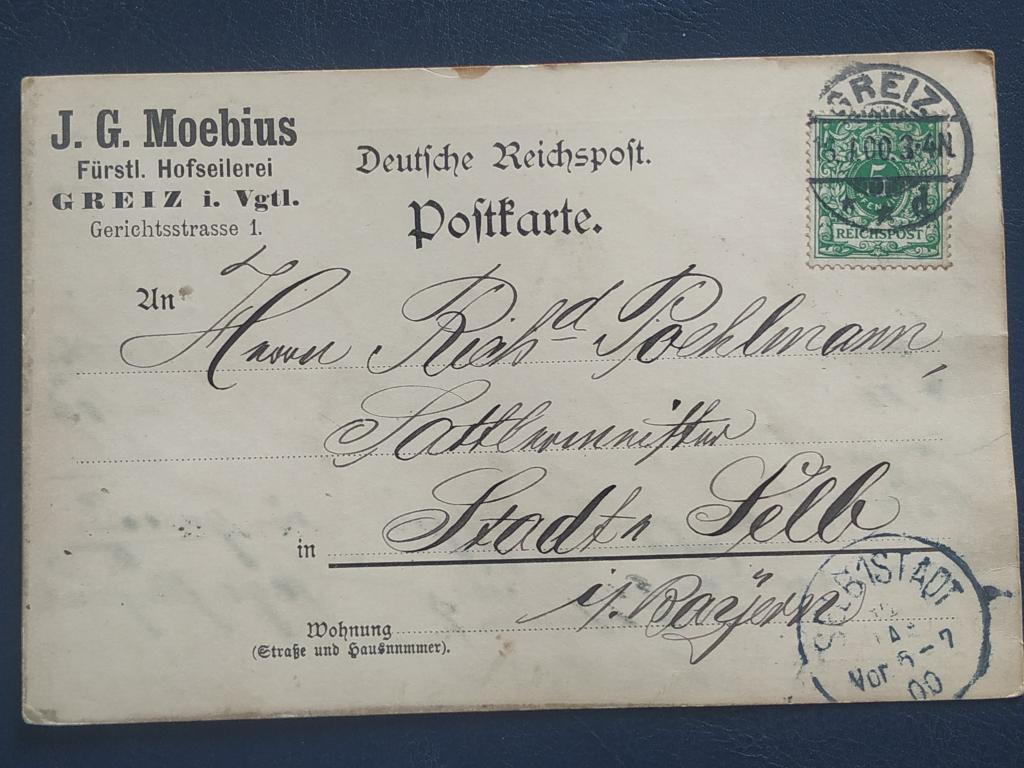 J. G. Moebius
Fürstl. Hofseilerei
GREIZ i. Vgtl.
Gerichtsstrasse 1.
Deutsche Reichspost.
Postkarte.
GREIZ
00.3-4N.
d
5
REICHSPOST
An
Herrn Richd Poehlmann,
Sattlermeister
in Stadt Selb
i/. Bayern
Wohnung
(Straße und Hausnnmmer).
STADT
Vor 6-7
00